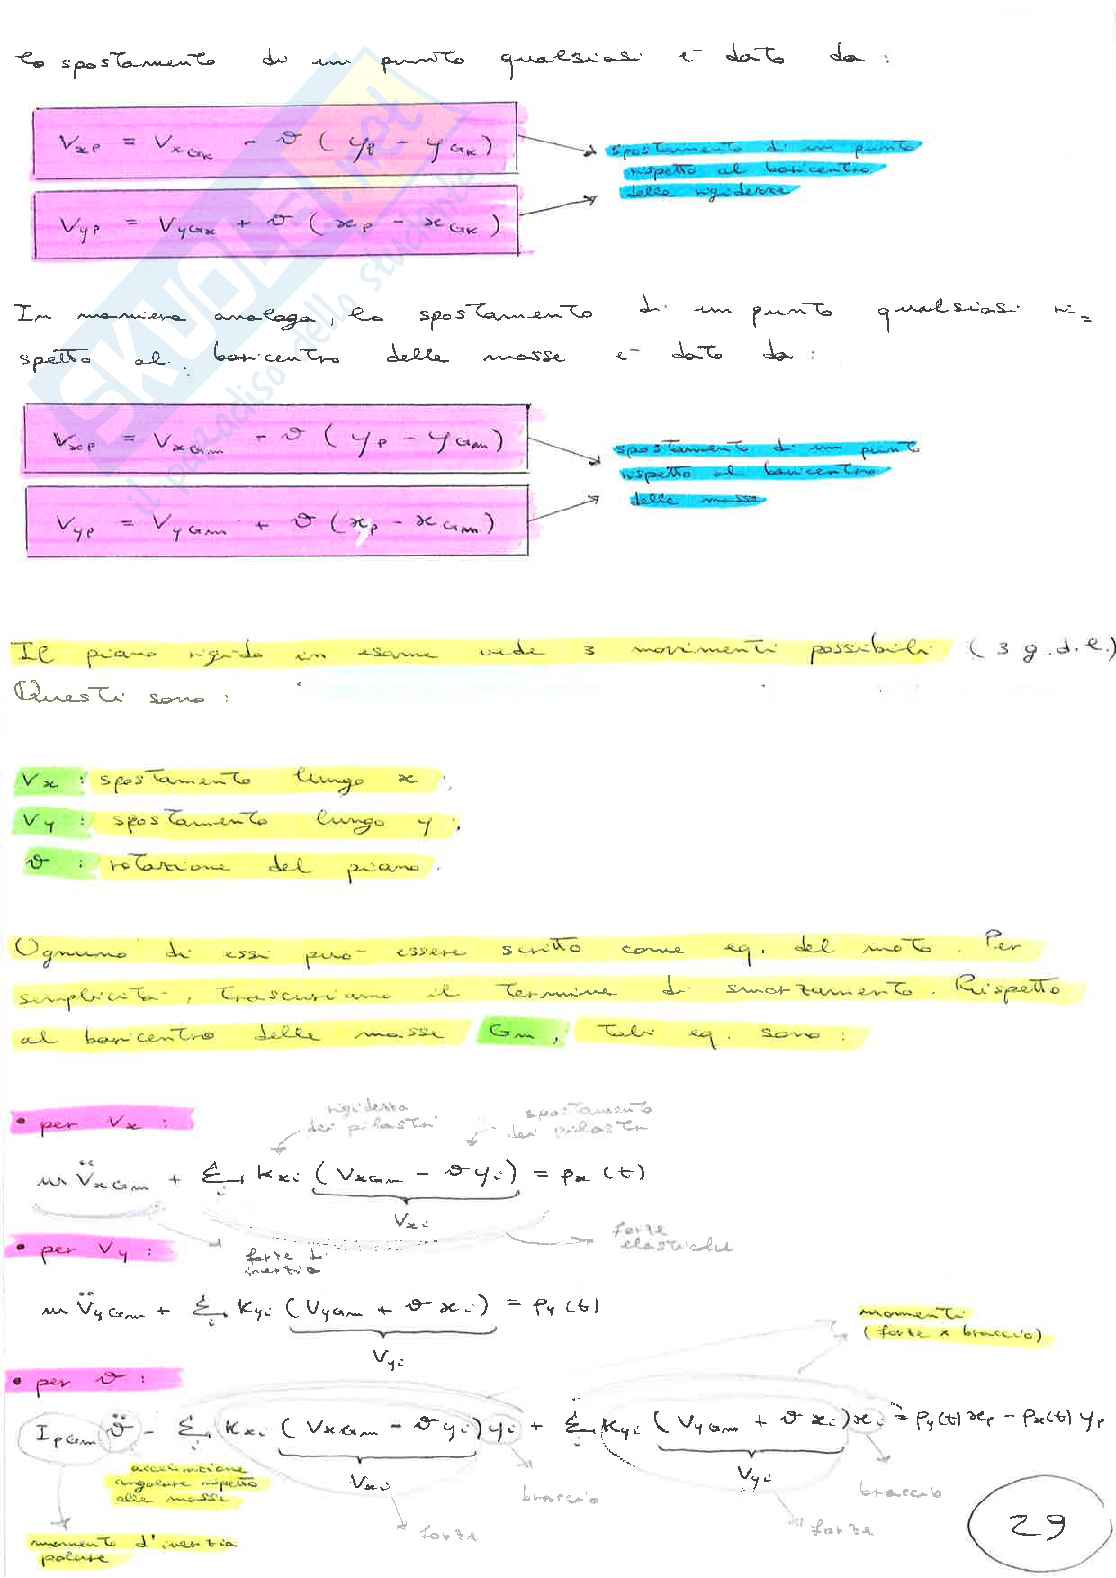 lo spostamento di un punto qualsiasi è dato da :
VxP = VxGK - ϑ ( yP - yGK )
spostamento di un punto
rispetto al baricentro
delle rigidezze
VyP = VyGK + ϑ ( xP - xGK )
In maniera analoga, lo spostamento di un punto qualsiasi ri=
spetto al baricentro delle masse è dato da :
VxP = VxGm - ϑ ( yP - yGm )
spostamento di un punto
rispetto al baricentro
delle masse
VyP = VyGm + ϑ ( xP - xGm )
Il piano rigido in esame vede 3 movimenti possibili ( 3 g.d.l.)
Questi sono :
Vx : spostamento lungo x ;
Vy : spostamento lungo y ;
ϑ : rotazione del piano.
Ognuno di essi può essere scritto come eq. del moto. Per
semplicità, trascuriamo il termine di smorzamento. Rispetto
al baricentro delle masse Gm, tali eq. sono :
• per Vx :
rigidezza
dei pilastri
spostamento
dei pilastri
m V̈xGm + Σi Kxi ( VxGm - ϑ yi ) = px (t)
Vxi
forze
elastiche
• per Vy :
forze di
inerzia
m V̈yGm + Σi Kyi ( VyGm + ϑ xi ) = py (t)
Vyi
momenti
( forze x braccio)
• per ϑ :
IpGm ϑ̈ - Σi Kxi ( VxGm - ϑ yi ) yi + Σi Kyi ( VyGm + ϑ xi ) xi = py(t) xP - px(t) yP
Vxi
Vyi
accelerazione
angolare rispetto
alle masse
braccio
braccio
forze
forze
momento d'inerzia
polare
29
SKUOLA.net
il paradiso dello studente